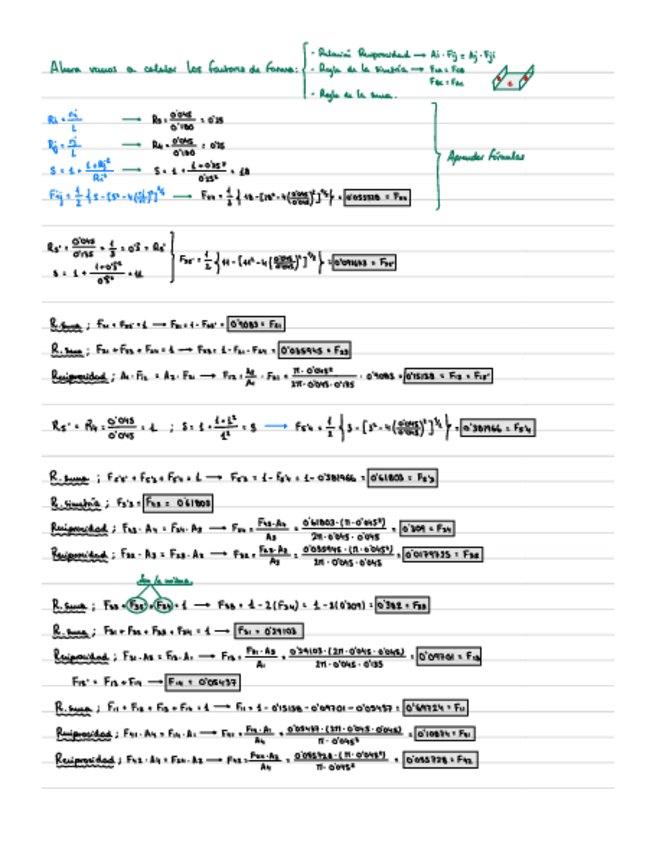 Ahora vamos a calcular los factores de forma:
- Relación Reciprocidad → Ai · Fij = Aj · Fji
- Regla de la simetría →
- Regla de la suma.
Ri = ri/L → R2 = 0'045/0'180 = 0'25
Rj = rj/L → R4 = 0'045/0'180 = 0'25
S = 1 + (1+Rj²)/Ri² → S = 1 + (1+0'25²)/0'25² = 18
Fij = 1/2 {S - [S² - 4(rj/ri)²]^1/2} → F24 = 1/2 {18 - [18² - 4(0'045/0'045)²]^1/2} = 0'055728 = F24
Aprender fórmulas
= 0'045/0'135 = 1/3 = 0'3̂
S = 1 + (1+0'3̂²)/0'3̂² = 11
= 1/2 {11 - [11² - 4(0'045/0'045)²]^1/2} =
R. suma ; → 0'9083 = F21
R. suma ; F21 + F23 + F24 = 1 → F23 = 1 - F21 - F24 = 0'035945 = F23
Reciprocidad ; A1 · F12 = A2 · F21 → F12 = A2/A1 · F21 = π · 0'045²/2π · 0'045 · 0'135 · 0'9083 = 0'15138 = F12 = F15'
= 0'045/0'045 = 1 ; S = 1 + (1+1²)/1² = 3 → F5'4 = 1/2 {3 - [3² - 4(0'045/0'045)²]^1/2} = 0'381966 = F5'4
R. suma ; F5'5' + F5'3 + F5'4 = 1 → F5'3 = 1 - F5'4 = 1 - 0'381966 = 0'61803 = F5'3
R. simetría ; F5'3 = F43 = 0'61803
Reciprocidad ; F43 · A4 = F34 · A3 → F34 = F43 · A4/A3 = 0'61803 · (π · 0'045²)/2π · 0'045 · 0'045 = 0'309 = F34
Reciprocidad ; F32 · A3 = F23 · A2 → F32 = F23 · A2/A3 = 0'035945 · (π · 0'045²)/2π · 0'045 · 0'045 = 0'0179725 = F32
Son la misma.
R. suma ; F33 + F35' + F34 = 1 → F33 = 1 - 2(F34) = 1 - 2(0'309) = 0'382 = F33
R. suma ; F31 + F32 + F33 + F34 = 1 → F31 = 0'29103
Reciprocidad ; F31 · A3 = F13 · A1 → F13 = F31 · A3/A1 = 0'29103 · (2π · 0'045 · 0'045)/2π · 0'045 · 0'135 = 0'09701 = F13
F15' = F13 + F14 → F14 = 0'05437
R. suma ; F11 + F12 + F13 + F14 = 1 → F11 = 1 - 0'15138 - 0'09701 - 0'05437 = 0'69724 = F11
Reciprocidad ; F41 · A4 = F14 · A1 → F41 = F14 · A1/A4 = = F41
Reciprocidad ; F42 · A4 = F24 · A2 → F42 = F24 · A2/A4 = 0'055728 · (π · 0'045²)/π · 0'045² = 0'055728 = F42